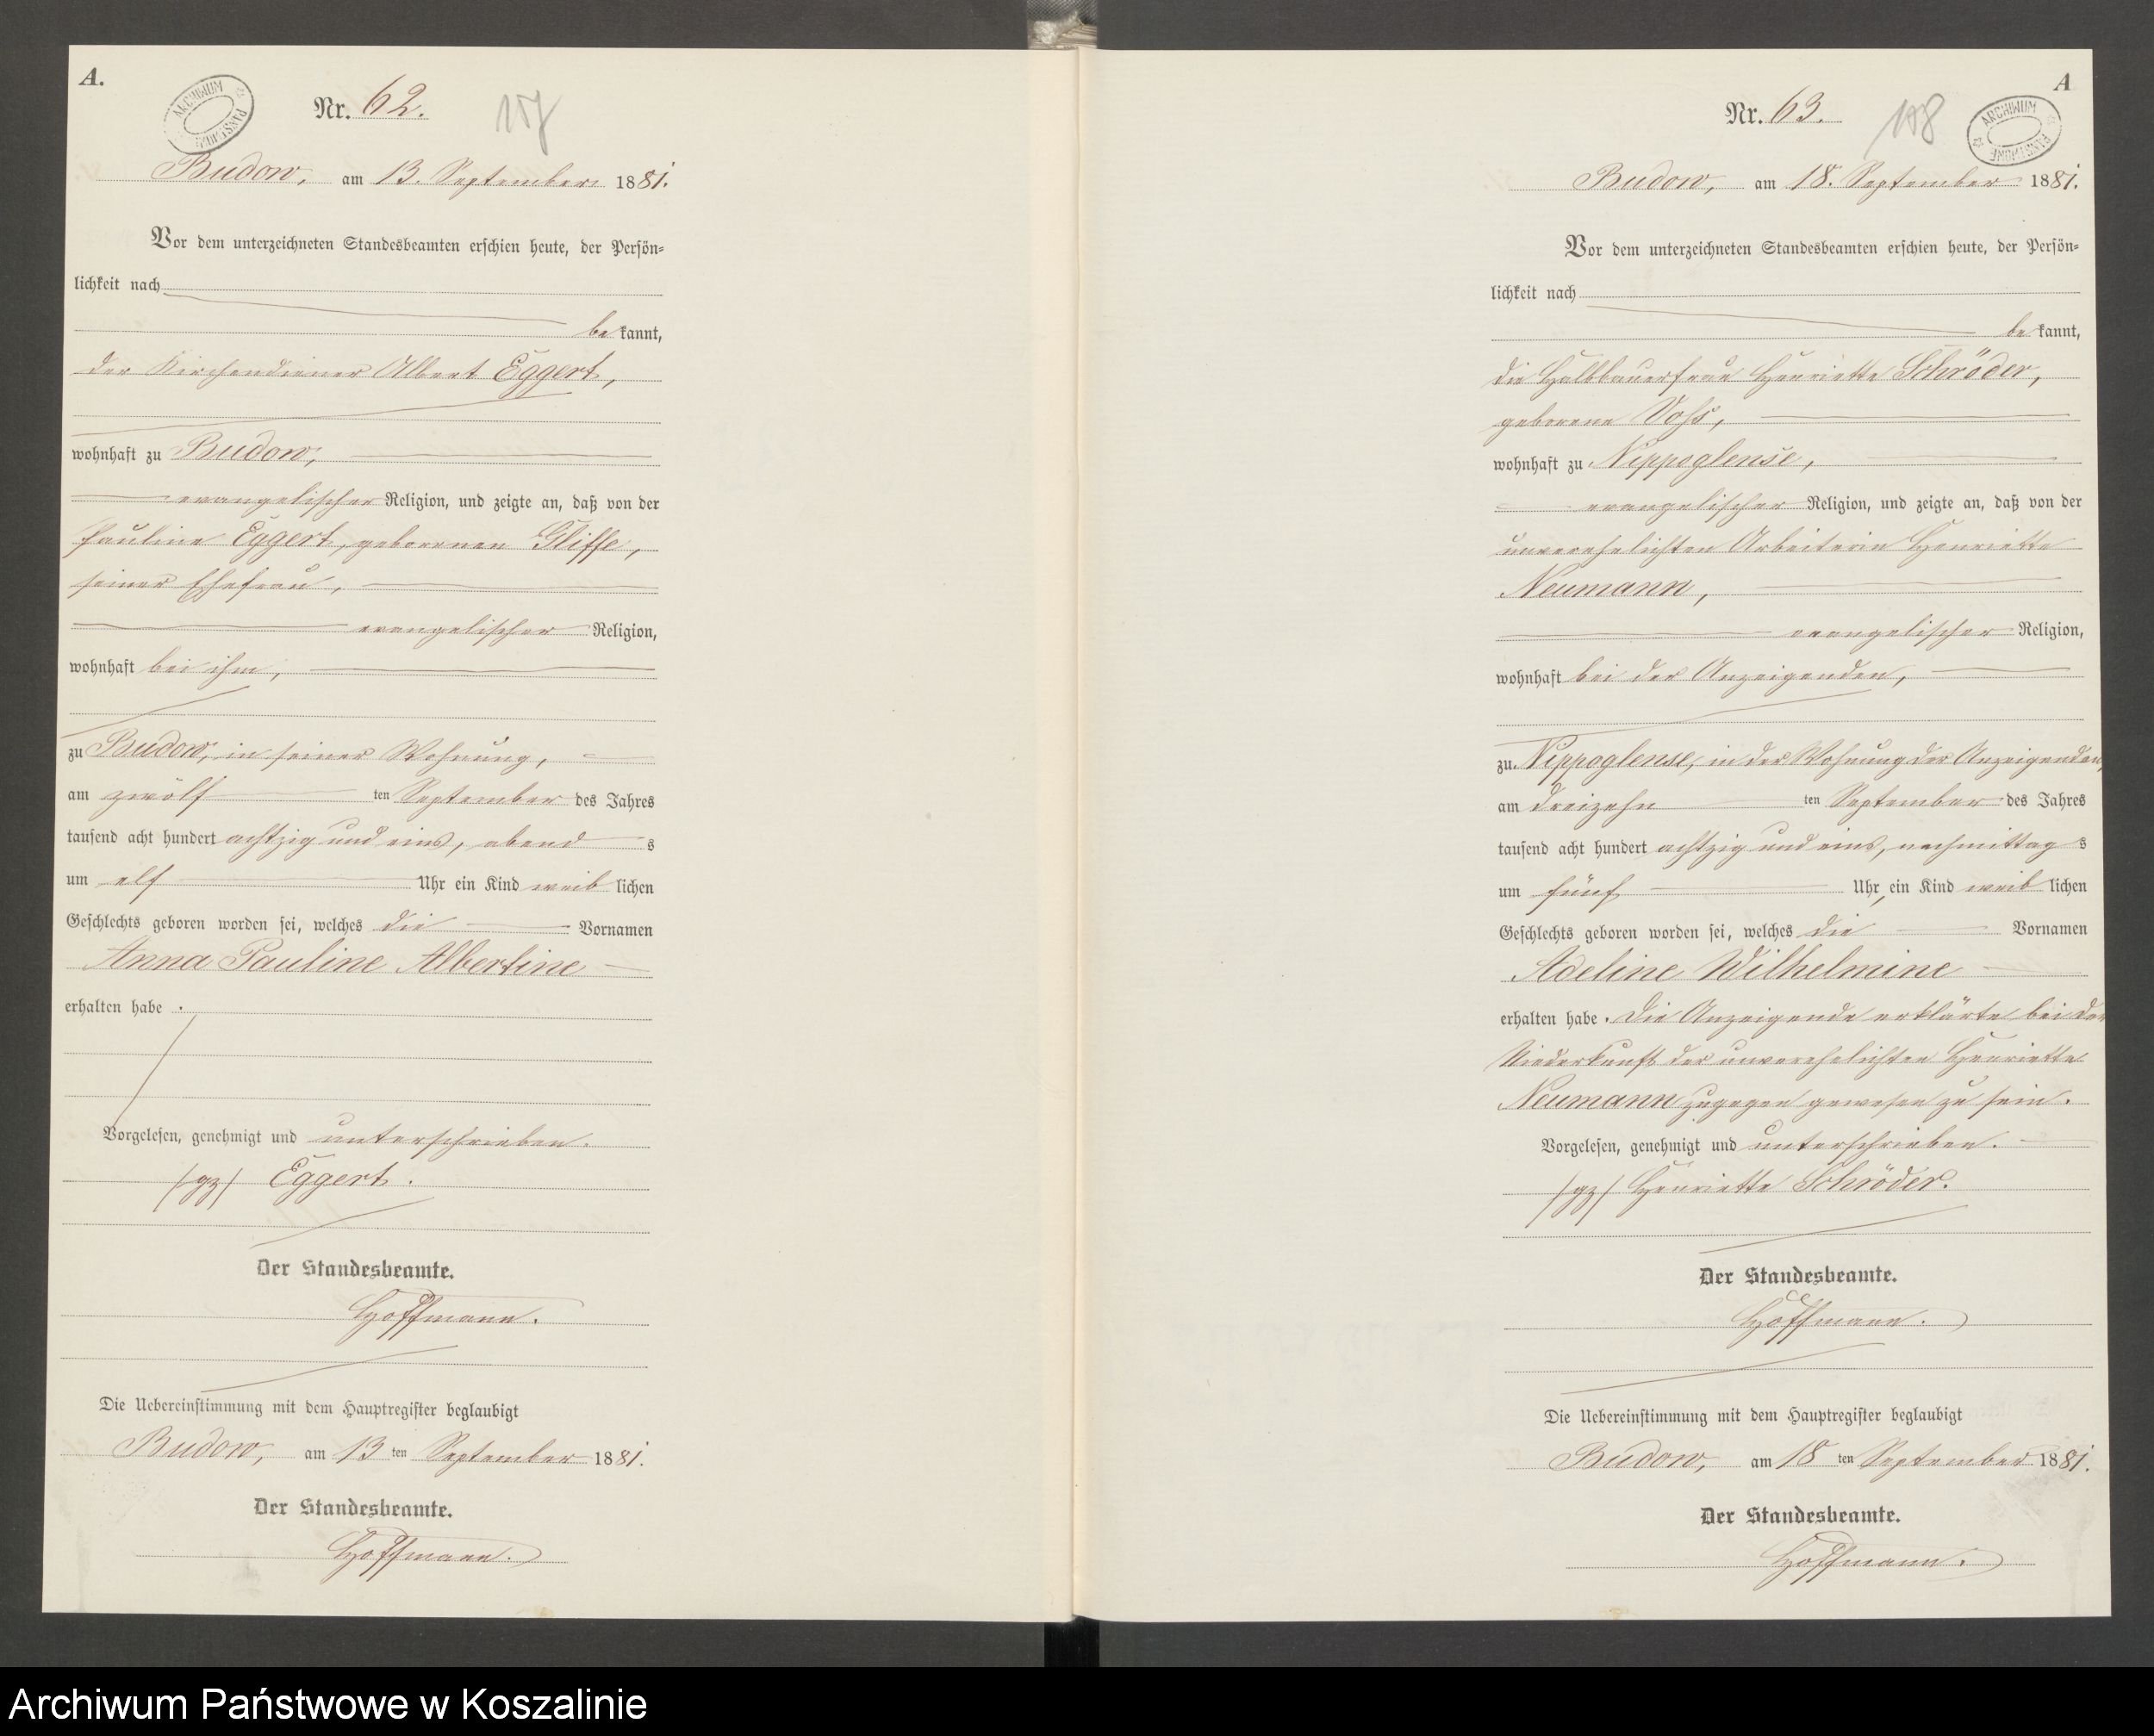 A.
ARCHIWUM PAŃSTWOWE
Nr. 62.
Budow, am 13. September 1881.
Vor dem unterzeichneten Standesbeamten erschien heute, der Persön-
lichkeit nach
be kannt,
der Kirchendiener Albert Eggert,
wohnhaft zu Budow,
evangelischer Religion, und zeigte an, daß von der
Pauline Eggert, geborenen Gliffe,
seiner Ehefrau,
evangelischer Religion,
wohnhaft bei ihm,
zu Budow, in seiner Wohnung,
am zwölf ten September des Jahres
tausend acht hundert achtzig und eins, abend s
um elf Uhr ein Kind weib lichen
Geschlechts geboren worden sei, welches die Vornamen
Anna Pauline Albertine
erhalten habe.
Vorgelesen, genehmigt und unterschrieben.
/gz/ Eggert.
Der Standesbeamte.
Hoffmann.
Die Uebereinstimmung mit dem Hauptregister beglaubigt
Budow, am 13 ten September 1881.
Der Standesbeamte.
Hoffmann.
A
ARCHIWUM PAŃSTWOWE
Nr. 63.
108
Budow, am 18. September 1881.
Vor dem unterzeichneten Standesbeamten erschien heute, der Persön-
lichkeit nach
be kannt,
die Halbbauerfrau Henriette Schröder,
geborene Voss,
wohnhaft zu Nippoglense,
evangelischer Religion, und zeigte an, daß von der
unverehelichten Arbeiterin Henriette
Neumann,
evangelischer Religion,
wohnhaft bei der Anzeigenden,
zu Nippoglense, in der Wohnung der Anzeigenden,
am dreizehn ten September des Jahres
tausend acht hundert achtzig und eins, nachmittag s
um fünf Uhr, ein Kind weib lichen
Geschlechts geboren worden sei, welches die Vornamen
Adeline Wilhelmine
erhalten habe. Die Anzeigende erklärte bei der
Niederkunft der unverehelichten Henriette
Neumann zugegen gewesen zu sein.
Vorgelesen, genehmigt und unterschrieben.
/gz/ Henriette Schröder.
Der Standesbeamte.
Hoffmann.
Die Uebereinstimmung mit dem Hauptregister beglaubigt
Budow, am 18 ten September 1881.
Der Standesbeamte.
Hoffmann.
Archiwum Państwowe w Koszalinie